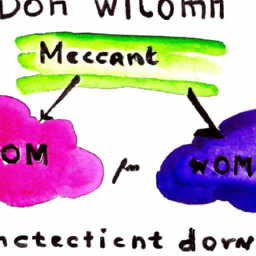 DOn WilOmn
Meccant
OM
wOM
nctectient dorw